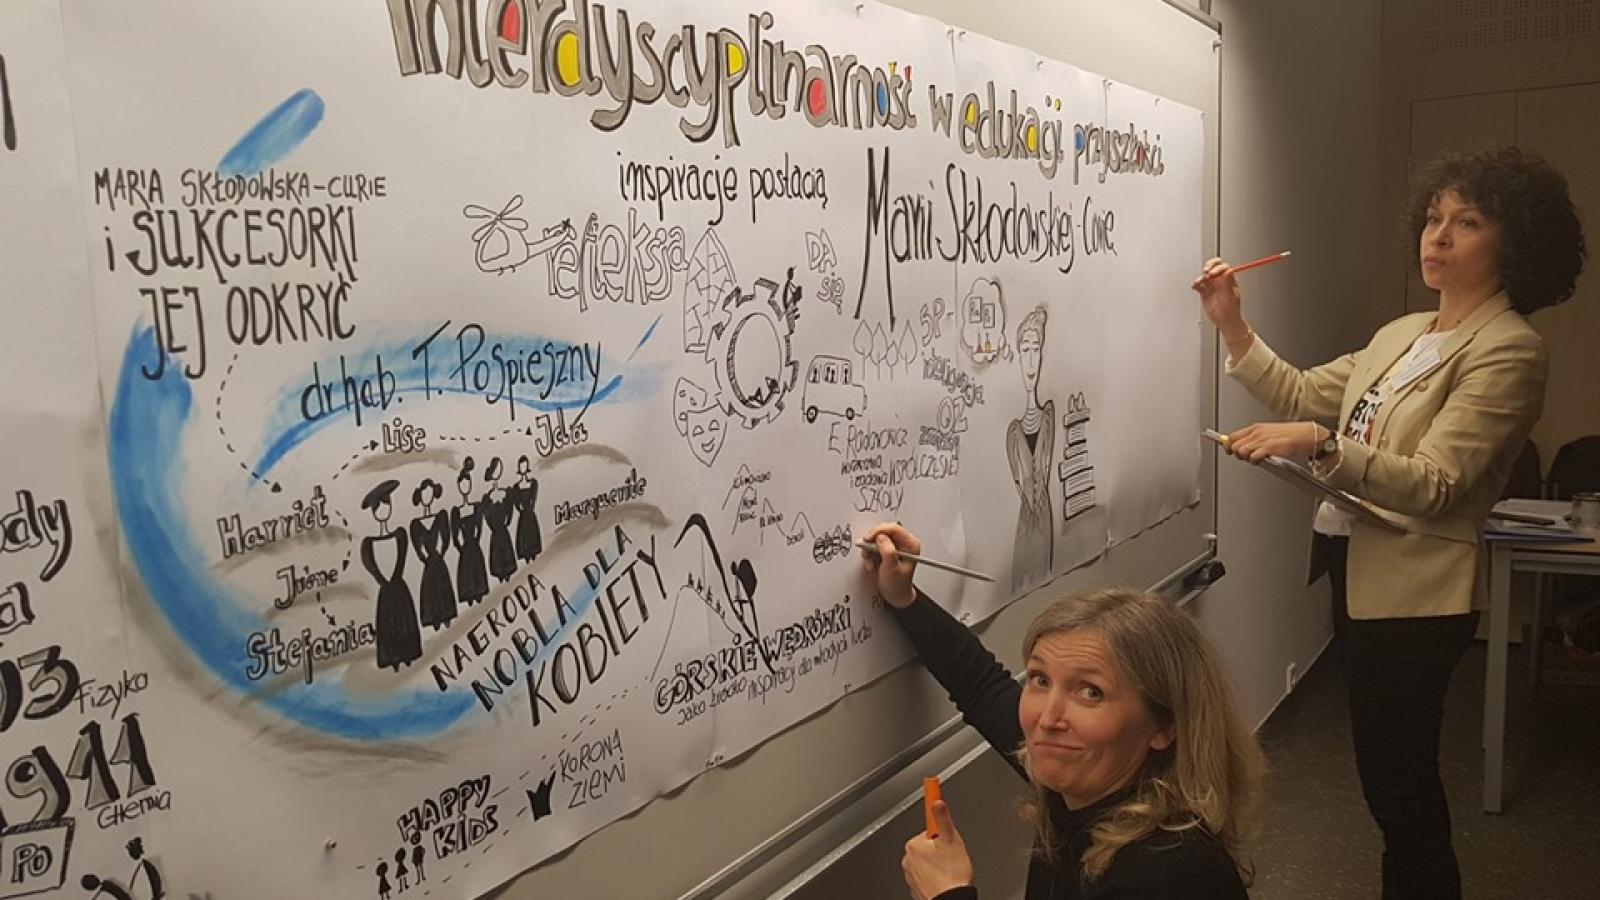 Interdyscyplinarność w edukacji przyszłości
inspiracje postacią
Marii Skłodowskiej-Curie
MARIA SKŁODOWSKA-CURIE
i SUKCESORKI
JEJ ODKRYĆ
dr hab. T. Pospieszny
Lise
Ida
Harriet
Marguerite
Irène
Stefania
NAGRODA
NOBLA DLA
KOBIETY
refleksja
DA
SIĘ
SP-
inteligencja
E. Radanowicz
WSPÓŁCZESNEJ
SZKOŁY
GÓRSKIE WĘDRÓWKI
jako źródło inspiracji dla młodych ludzi
KORONA
ZIEMI
HAPPY
KIDS
Fizyka
1911
CHEMIA
PO